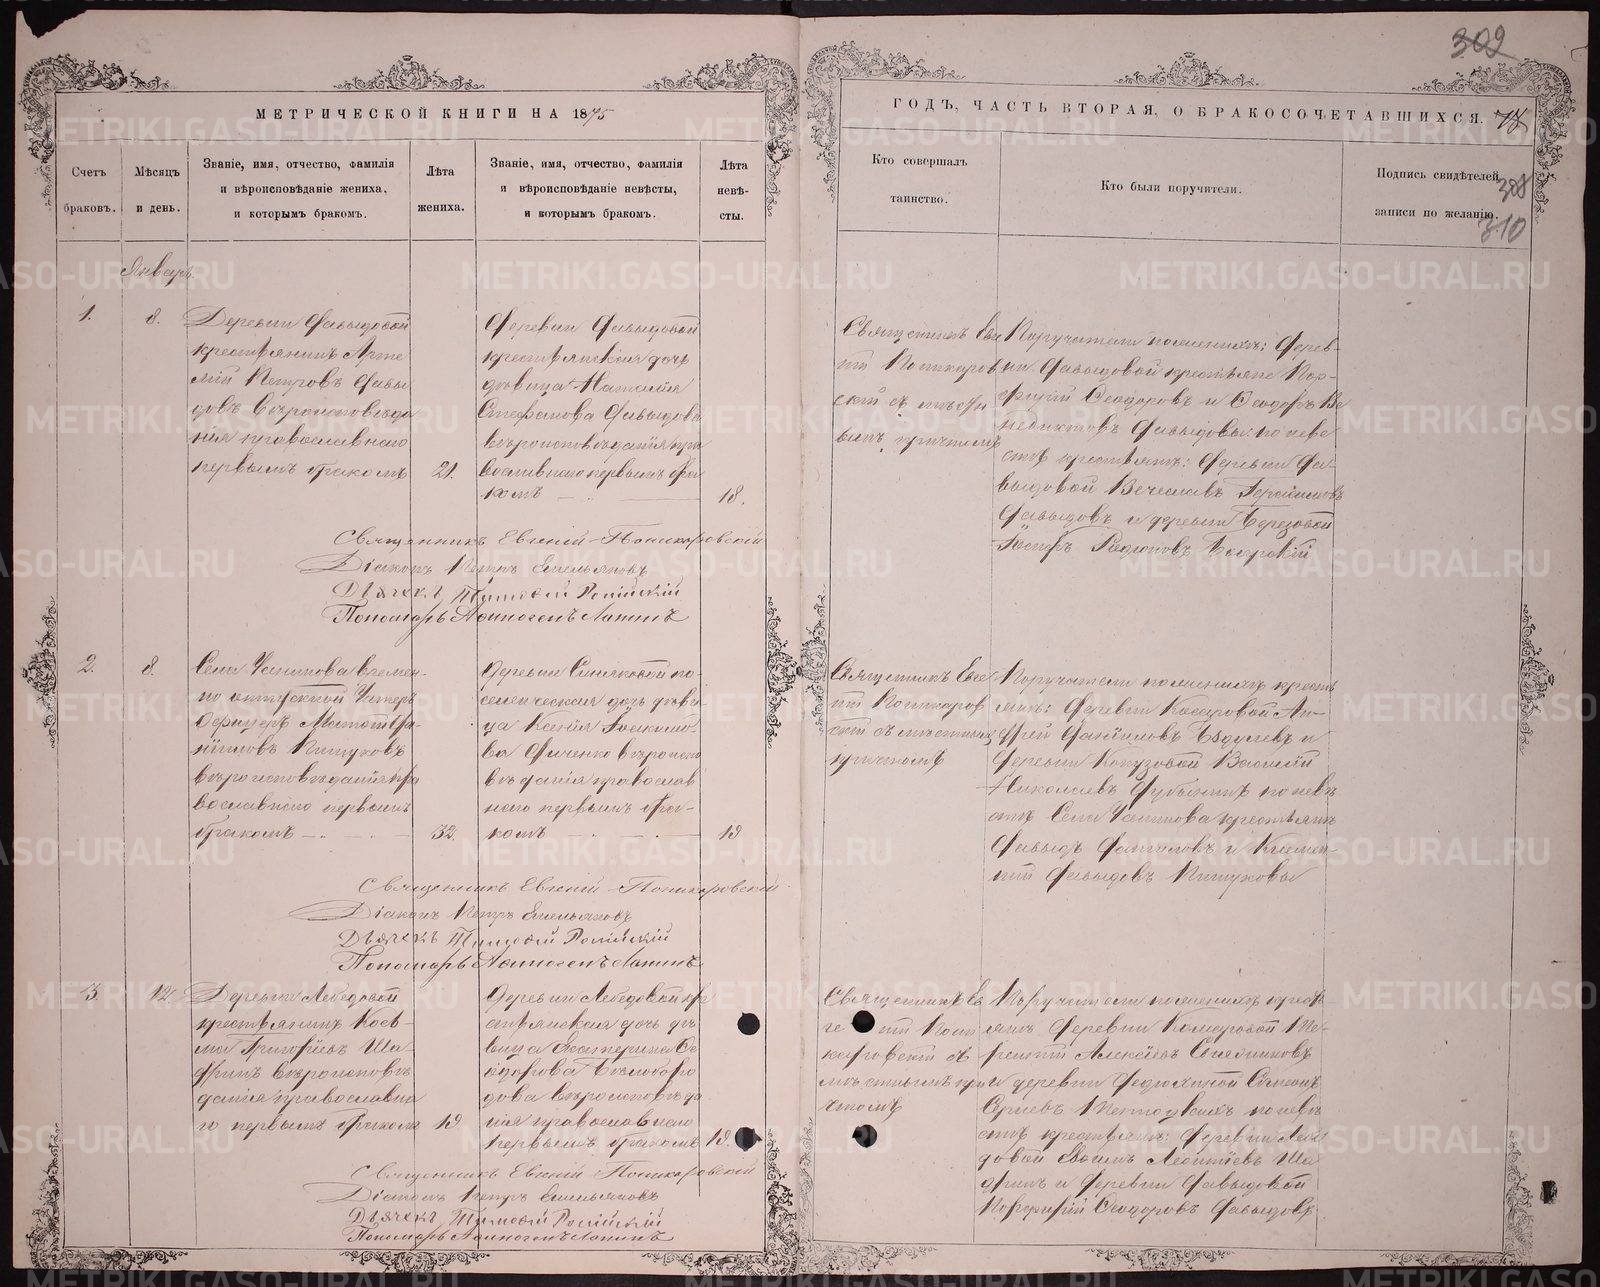 302
МЕТРИЧЕСКОЙ КНИГИ НА 1875
ГОДЪ, ЧАСТЬ ВТОРАЯ, О БРАКОСОЧЕТАВШИХСЯ.
308
310
Счетъ
браковъ.
Мѣсяцъ
и день.
Званіе, имя, отчество, фамилія
и вѣроисповѣданіе жениха,
и которымъ бракомъ.
Лѣта
жениха.
Званіе, имя, отчество, фамилія
и вѣроисповѣданіе невѣсты,
и которымъ бракомъ.
Лѣта
невѣ-
сты.
Кто совершалъ
таинство.
Кто были поручители.
Подпись свидѣтелей
записи по желанію.
Январь
1.
8.
Деревни Давыдовой
крестьянинъ Арте
мій Петровъ Давы
довъ вѣроисповѣда
нія православнаго
первымъ бракомъ
21.
Деревни Давыдовой
крестьянская дочь
дѣвица Наталія
Стефанова Давыдова
вѣроисповѣданія пра
вославнаго первымъ бра
комъ
18.
Священникъ Евге
ній Поникаров
скій съ мѣстн
ымъ причтомъ
Поручители по женихѣ: Дерев-
ни Давыдовой крестьяне Пор-
фирій Ѳеодоровъ и Ѳеодоръ Ве
недиктовъ Давыдовы по неве
стѣ крестьяне: Деревни Да-
выдовой Вечеславъ Герасимовъ
Давыдовъ и деревни Березовой
Петръ Родіоновъ Боярскій
Священникъ Евгеній Поникаровскій
Діаконъ Петръ Емельяновъ
Дьячекъ Тимофей
Пономарь Аѳиногенъ Лапинъ
2.
8.
Села Чапипова времен-
но отпускной Унтеръ
Офицеръ
Даниловъ Пишуковъ
вѣроисповѣданія пра
вославнаго первымъ
бракомъ
32.
Деревни Синяковой по-
селенческая дочь дѣви-
ца Ксенія
ва вѣроиспо
вѣданія православ
наго первымъ бра-
комъ
19
Священникъ Евге
ній Поникаров
скій съ мѣстнымъ
причтомъ
Поручители по женихѣ крестья
яне: Деревни Комаровой Ан-
дрей Даниловъ и
Деревни Василій
Николаевъ по невѣ
стѣ Села Чапипова крестьяне
Давыдъ и Климен-
тій Давыдовъ Пишуковы
Священникъ Евгеній Поникаровскій
Діаконъ Петръ Емельяновъ
Дьячекъ Тимофей
Пономарь Аѳиногенъ Лапинъ
3.
12.
Деревни Лебедовой
крестьянинъ Козь-
ма Григорьевъ Ша-
дринъ вѣроисповѣ
данія православна
го первымъ бракомъ
19
Деревни Лебедовой кре
стьянская дочь дѣ-
вица Екатерина Ѳе
одорова Бѣлоборо
дова вѣроисповѣда
нія православнаго
первымъ бракомъ
19.
Священникъ Ев
ге ній Пони
каровскій съ
мѣстнымъ при
чтомъ
Поручители по женихѣ кресть
яне Деревни Комаровой Те-
рентій Алексѣевъ
и деревни Федюшиной Симеонъ
по невѣ
стѣ крестьяне: Деревни Лебе
довой Леонтіевъ Ша
дринъ и Деревни Давыдовой
Порфирій Ѳеодоровъ Давыдовъ
Священникъ Евгеній Поникаровскій
Діаконъ Петръ Емельяновъ
Дьячекъ Тимофей
Пономарь Аѳиногенъ Лапинъ
METRIKI.GASO-URAL.RU